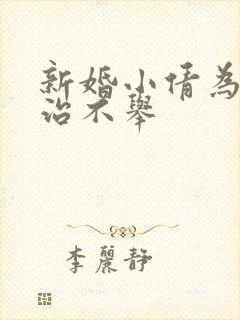 新婚小倩為
治不舉
李麗靜